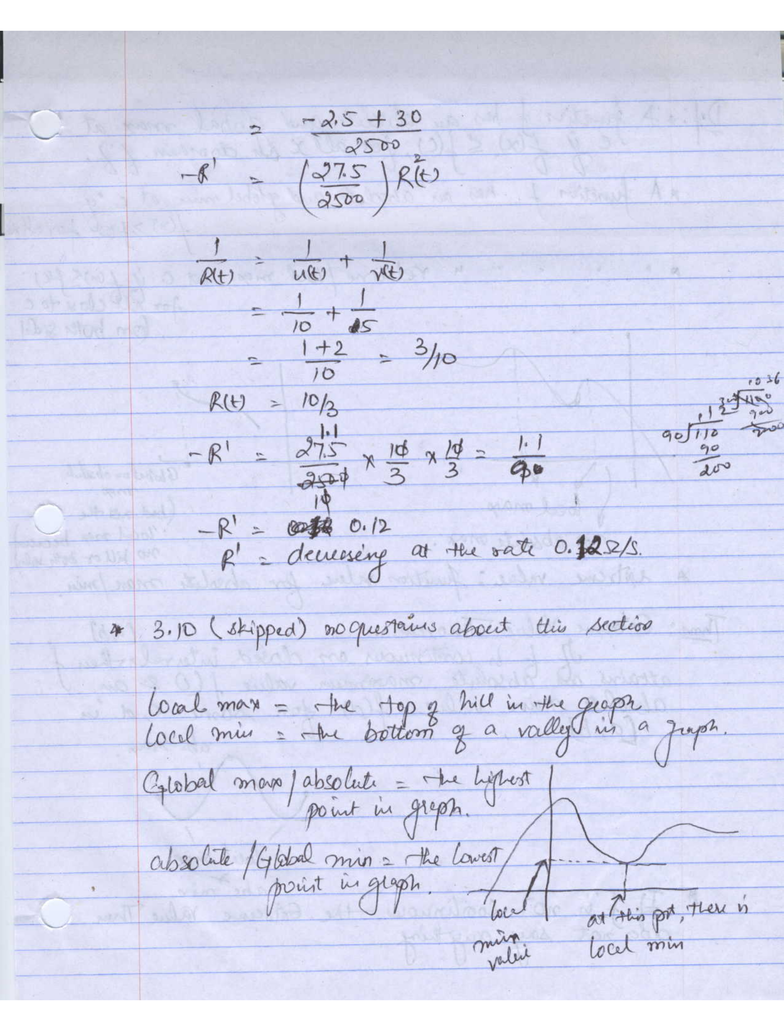 = (-2.5 + 30)/2500
-R' = (27.5/2500) R²(t)
1/R(t) = 1/u(t) + 1/v(t)
= 1/10 + 1/5
= (1+2)/10 = 3/10
R(t) = 10/3
1.1
-R' = 27.5/2500 × 10/3 × 10/3 = 1.1/90
10
-R' = 0.12
R' = decreasing at the rate 0.12 Ω/s.
90 1.2 110
90
200
* 3.10 (skipped) no questains about this section
local max = the top of hill in the graph
local min = the bottom of a valley in a graph.
Global max/absolute = the highest
point in graph.
absolute/Global min = the lowest
point in graph.
local
min
value
at this pnt, there is
local min